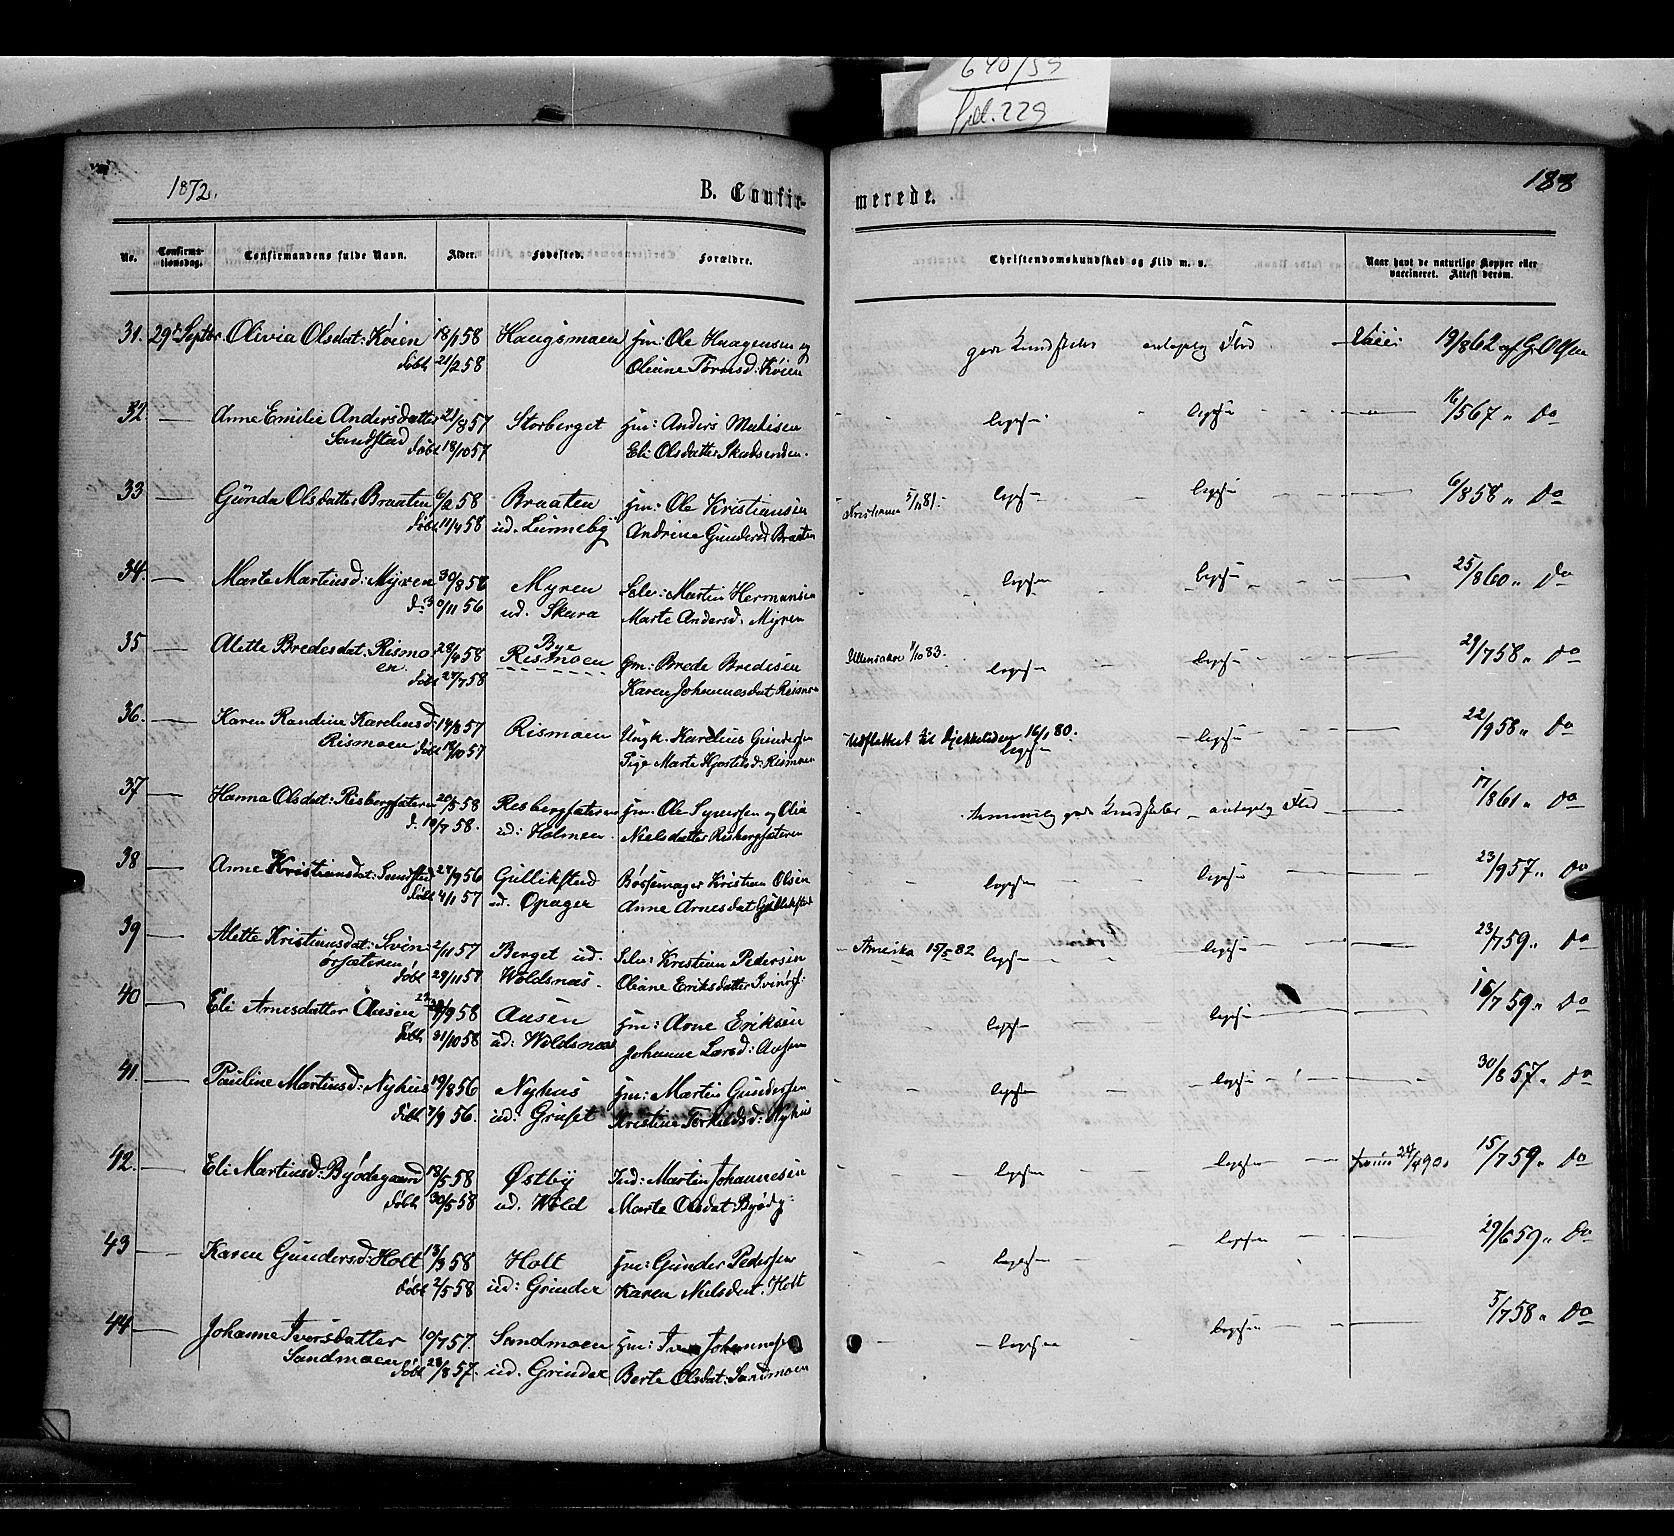 640/59
fol. 229
1872.
B. Confir-
merede.
188
No.
Confirma-
tionsdag.
Confirmandens fulde Navn.
Alder.
Fødested.
Forældre.
Christendomskundskab og Flid m. v.
Naar havt de naturlige Kopper eller
vaccineret. Attest derom.
31. 29de Septbr. Olivia Olsdat: Køien 18/1 58 Haugsmoen Gm: Ole Haagensen og
døbt 21/2 58 Oliane
gode Kundskaber antagelig Flid — Vacc: 19/8 62 af G. Olsen
32. — Anne Emilie Andersdatter 21/8 57 Storberget Gm: Anders
Sandstad døbt 18/10 57 Eli Olsdatter
" 16/5 67 " do
33 — Gunda Olsdatter Braaten 6/2 58 Braaten Gm: Ole Kristiansen
døbt 11/4 58 ud. Lunneby Andrine Gundersd Braaten
5/11 81. 6/8 58 " do
34. — Marte Martinsd: Myren 30/8 56 Myren Selv: Martin Hermansen
d: 30/11 56 ud. Skara Marte Andersd. Myren
25/8 60 " do
35 — Alette Bredesdat: Rismo 28/4 58 Bye
en. Rismoen Gm: Brede Bredesen
døbt 27/7 58 Karen Johannesdat Rismoen
Ullensaker 1/10 83. 29/7 58 " do
36. — Karen Randine Kareliusd: 14/8 57 Rismoen Ungk. Karelius Gundersen
Rismoen døbt 18/10 57 Pige Marte Rismoen
Udflyttet til 16/1 80. 22/9 58 " do
37 — Hanna Olsdat: Risbergsæteren 20/5 58 Risbergsæteren Gm: Ole Syversen og Olia
d. 18/7 58. ud: Holmen Nielsdatter Risbergsæteren
gode Kundskaber antagelig Flid — 17/8 61 " do
38 — Anne Kristiansdat: 27/9 56 Gullikstad Bøssemager Kristian Olsen
døbt 4/1 57 ud. Opager Anne Arnesdat Gullikstad
23/9 57 " do
39 — Alette Kristiansdat: Svin- 2/11 57 Berget ud. Selv: Kristian Pedersen
ørsæteren døbt 29/11 57 Woldsnæs. Oliane Eriksdatter
Amerika 15/5 82 23/7 59 " do
40 — Eli Arnesdatter Ausen 9 58 Ausen Gm: Arne Eriksen
døbt 31/10 58 ud: Woldsnæs Johanne Larsd: Ausen
16/7 59 " do
41. — Pauline Martinsd: Nyhus 19/8 56 Nyhus Gm: Martin Gundersen
døbt 7/9 56. ud: Gruset Kristine Torkildsd: Nyhus
30/8 57 " do
42. — Eli Martinsd: Byødegaard 18/5 58 Østby Ind: Martin Johannesen
døbt 30/5 58 ud. Wold Marte Olsdat Byødg:
24/4 90. 15/7 59 " do
43 — Karen Gundersd: Holt 13/3 58 Holt Gm: Gunder Pedersen
døbt 2/5 58 ud: Grinder Karen Nielsdat. Holt
29/6 59 " do
44 — Johanne Iversdatter 10/7 57. Sandmoen Gm: Iver Johannesen
Sandmoen døbt 28/8 57. ud. Grinder Berte Olsdat: Sandmoen
5/7 58 " do